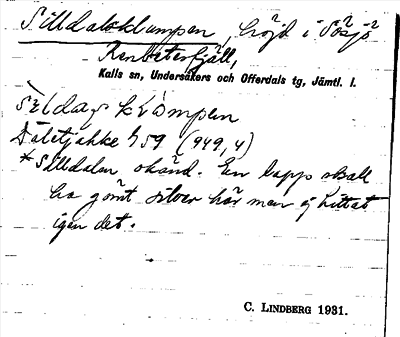 Silldalsklumpen, höjd i Sösjö
Renbetesfjäll,
Kalls sn, Undersåkers och Offerdals tg, Jämtl. l.
klömpen
Daletjahke G 59 (949,4)
*Silldalen okänd. En lapp skall
ha gömt silver här men ej hittat
igen det.
C. LINDBERG 1931.